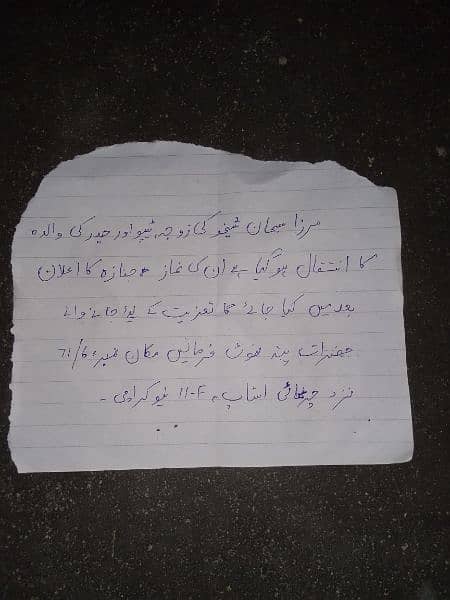 مرزا سبحان شیخو کی زوجہ، ٹیپو اور حیدر کی والدہ
کا انتقال ہوگیا ہے ان کی نماز جنازہ کا اعلان
بعد میں کیا جائے گا تعزیت کے لیۓ جانے والے
حضرات پتہ نوٹ فرمائیں مکان نمبر 71/6
نزد چڑھائی اسٹاپ، 11-F نیو کراچی -